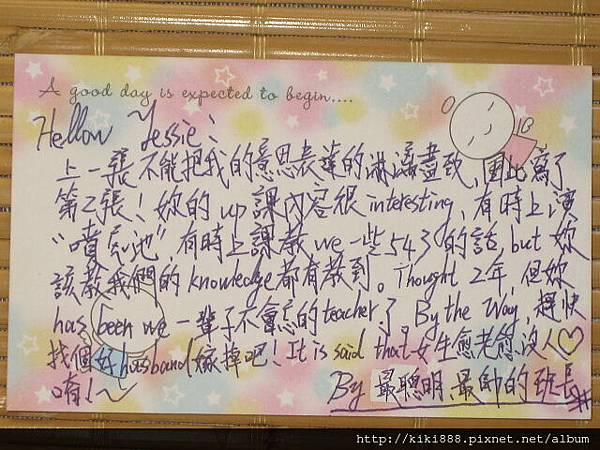 A good day is expected to begin....
Hellow Jessie:
上一張不能把我的意思表達的淋漓盡致,因此寫了
第2張!妳的up課內容很interesting,有時上演
"噴忽池",有時上課教we一些543的話,but妳
該教我們的knowledge都有教到。Thought 2年,但妳
has been we一輩子不會忘的teacher了。By the Way,趕快
找個好husband嫁掉吧!It is said that女生愈老愈沒人♡
唷!~
By 最聰明、最帥的班長#
http://kiki888.pixnet.net/album